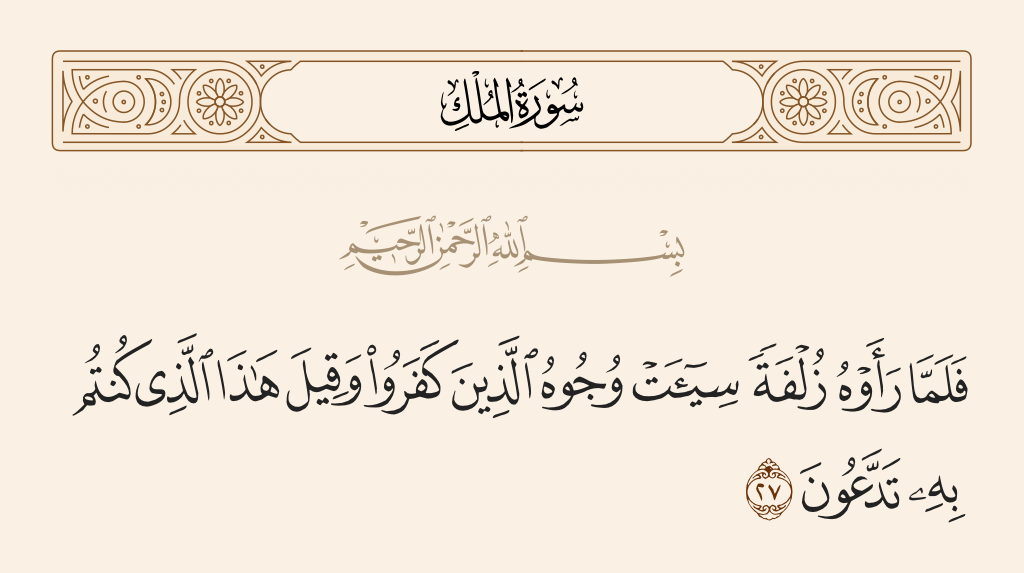 سُورَةُ الْمُلْكِ
بِسْمِ ٱللَّهِ ٱلرَّحْمَٰنِ ٱلرَّحِيمِ
فَلَمَّا رَأَوْهُ زُلْفَةً سِيٓـَٔتْ وُجُوهُ ٱلَّذِينَ كَفَرُوا۟ وَقِيلَ هَٰذَا ٱلَّذِى كُنتُم
بِهِۦ تَدَّعُونَ ٢٧